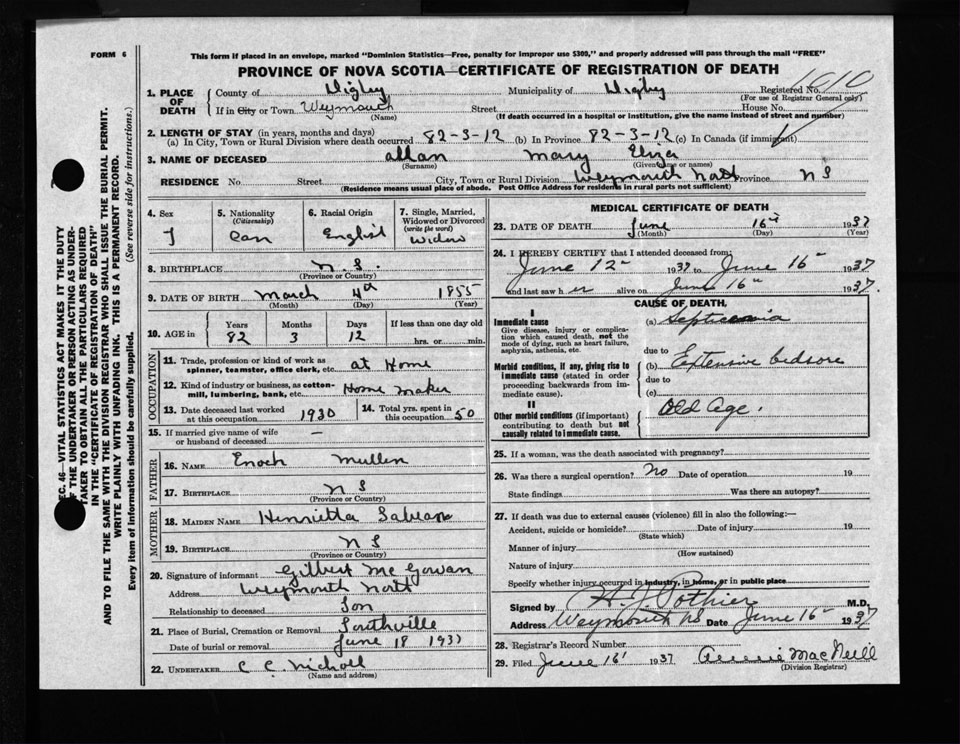 FORM 6
This form if placed in an envelope, marked "Dominion Statistics—Free, penalty for improper use $300," and properly addressed will pass through the mail "FREE"
PROVINCE OF NOVA SCOTIA—CERTIFICATE OF REGISTRATION OF DEATH
SEC. 46—VITAL STATISTICS ACT MAKES IT THE DUTY
OF THE UNDERTAKER OR PERSON ACTING AS UNDER-
TAKER TO OBTAIN ALL THE PARTICULARS REQUIRED
IN THE "CERTIFICATE OF REGISTRATION OF DEATH"
AND TO FILE THE SAME WITH THE DIVISION REGISTRAR WHO SHALL ISSUE THE BURIAL PERMIT.
WRITE PLAINLY WITH UNFADING INK. THIS IS A PERMANENT RECORD.
Every item of Information should be carefully supplied. (See reverse side for instructions.)
1. PLACE OF DEATH
County of Digby Municipality of Digby Registered No. 1010
(For use of Registrar General only)
If in City or Town Weymouth Street House No.
(Name) (If death occurred in a hospital or institution, give the name instead of street and number)
2. LENGTH OF STAY (in years, months and days)
(a) In City, Town or Rural Division where death occurred 82-3-12 (b) In Province 82-3-12 (c) In Canada (if immigrant)
3. NAME OF DECEASED allan Mary Eliza
(Surname) (Given name or names)
RESIDENCE No Street City, Town or Rural Division Weymouth North Province N S
(Residence means usual place of abode. Post Office Address for residents in rural parts not sufficient)
4. Sex 5. Nationality (Citizenship) 6. Racial Origin 7. Single, Married, Widowed or Divorced (write the word)
F Can English Widow
8. BIRTHPLACE N.S.
(Province or Country)
9. DATE OF BIRTH March 4th 1855
(Month) (Day) (Year)
10. AGE in Years Months Days If less than one day old
82 3 12 hrs. or min.
OCCUPATION
11. Trade, profession or kind of work as spinner, teamster, office clerk, etc. at Home
12. Kind of industry or business, as cotton-mill, lumbering, bank, etc. Home maker
13. Date deceased last worked at this occupation 1930 14. Total yrs. spent in this occupation 50
15. If married give name of wife or husband of deceased —
FATHER
16. NAME Enoch Mullen
17. BIRTHPLACE N S
(Province or Country)
MOTHER
18. MAIDEN NAME Henrietta Sabean
19. BIRTHPLACE N S
(Province or Country)
20. Signature of informant Gilbert Mc Gowan
Address Weymouth North
Relationship to deceased Son
21. Place of Burial, Cremation or Removal Southville
Date of burial or removal June 18 1937
22. UNDERTAKER C. C. Nicholl
(Name and address)
MEDICAL CERTIFICATE OF DEATH
23. DATE OF DEATH June 16th 1937
(Month) (Day) (Year)
24. I HEREBY CERTIFY that I attended deceased from:
June 12th 1937 to June 16th 1937
and last saw her alive on June 16th 1937.
CAUSE OF DEATH
I
Immediate cause (a) Septicaemia
Give disease, injury or complica-
tion which caused death, not the
mode of dying, such as heart failure,
asphyxia, asthenia, etc.
due to
Morbid conditions, if any, giving rise to (b) Extensive bedsore
immediate cause (stated in order due to
proceeding backwards from im-
mediate cause). (c)
II
Other morbid conditions (if important) Old Age.
contributing to death but not
causally related to immediate cause.
25. If a woman, was the death associated with pregnancy?
26. Was there a surgical operation? No Date of operation 19
State findings Was there an autopsy?
27. If death was due to external causes (violence) fill in also the following:—
Accident, suicide or homicide? Date of injury 19
(State which)
Manner of injury
(How sustained)
Nature of injury
Specify whether injury occurred in industry, in home, or in public place
Signed by H J Pothier M.D.
Address Weymouth NS Date June 16th 1937
28. Registrar's Record Number
29. Filed June 16th 1937 MacNeill
(Division Registrar)